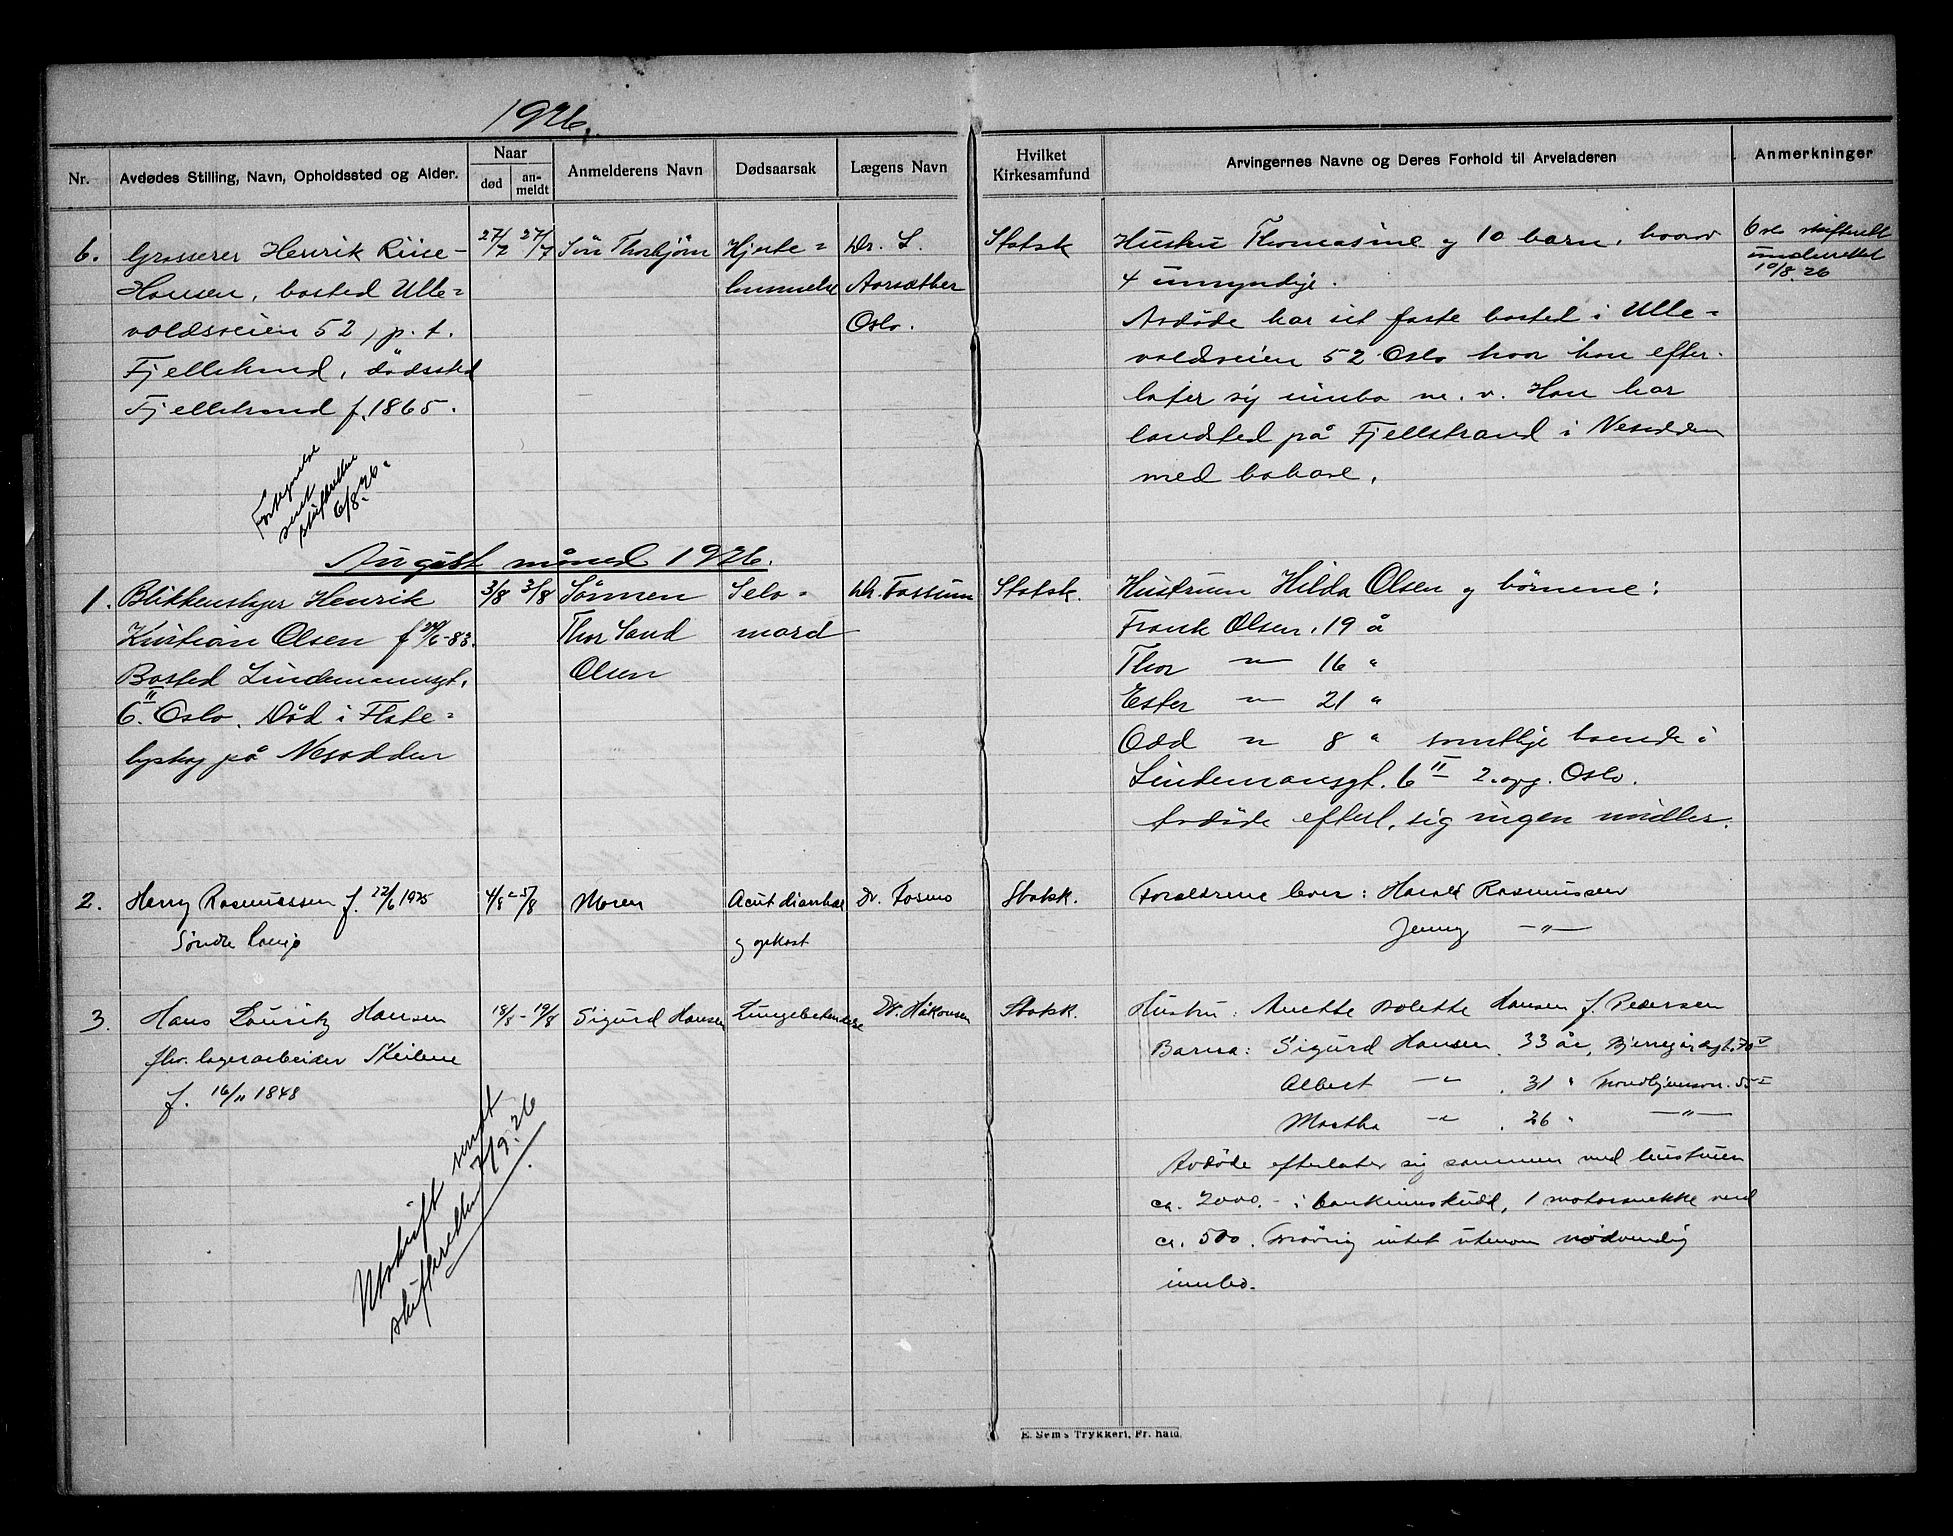 1926.
Nr.
Avdødes Stilling, Navn, Opholdssted og Alder.
Naar
død
an-
meldt
Anmelderens Navn
Dødsaarsak
Lægens Navn
Hvilket
Kirkesamfund
Arvingernes Navne og Deres Forhold til Arveladeren
Anmerkninger
6.
Grosserer Henrik Riise-
Hansen, bosted Ulle=
voldsveien 52, p.t.
Fjellstrand, dödssted
Fjellstrand f. 1865.
27/7 27/7
Sön Thorbjörn
Hjerte=
lammelse
Dr. L.
Aarsæther
Oslo.
Statsk
Hustru Thomasine og 10 barn, hvorav
4 umyndige.
Avdöde har sit faste bosted i Ulle=
voldsveien 52 Oslo hvor han efter-
later sig innbo m.v. Han har
landsted på Fjellstrand i Nesodden
med bohave.
Oslo skifterett
underrettet
10/8 26
sendt
skifteretten
6/8-26.
August måned 1926.
1.
Blikkenslager Henrik
Kristian Olsen f /6-83.
Bosted Lindemannsgt.
6 II Oslo. Död i
på Nesodden
3/8 3/8
Sönnen
Thor Sand
Olsen
Selv=
mord
Dr. Fossum
Statsk.
Hustruen Hilda Olsen og börnene:
Frank Olsen, 19 å
Thor -"- 16 "
Ester -"- 21 "
Odd -"- 8 " samtlige boende i
Lindemansgt. 6 II 2. opg. Oslo.
Avdöde efterl. sig ingen midler.
2.
Harry Rasmussen f. 22/6 1925
Søndre
4/8 - 5/8
Moren
Acut diarrhoe
og opkast
Dr. Fosmo
Statsk.
Foreldrene lever: Harald Rasmussen
Jenny -"-
3.
Hans Lauritz Hansen
fhv. lagerarbeider Steilene
f. 16/11 1848
18/8 - 19/8
Sigurd Hansen
Lungebetendelse
Dr. Håkonsen
Statsk.
Hustru: Anette Bolette Hansen f. Pedersen
Barna: Sigurd Hansen, 33 år,
Albert -"-, 31 "
Martha -"-, 26 " -"-
Avdöde efterlater sig sammen med hustruen
ca. 2000.- i bankinnskudd, 1 motorsnekke verd
ca. 500. Forövrig intet utenom nödvendig
innbo.
Utskrift sendt
skifteretten 7/9-26
E. Sem's Trykkeri, Fr.hald.